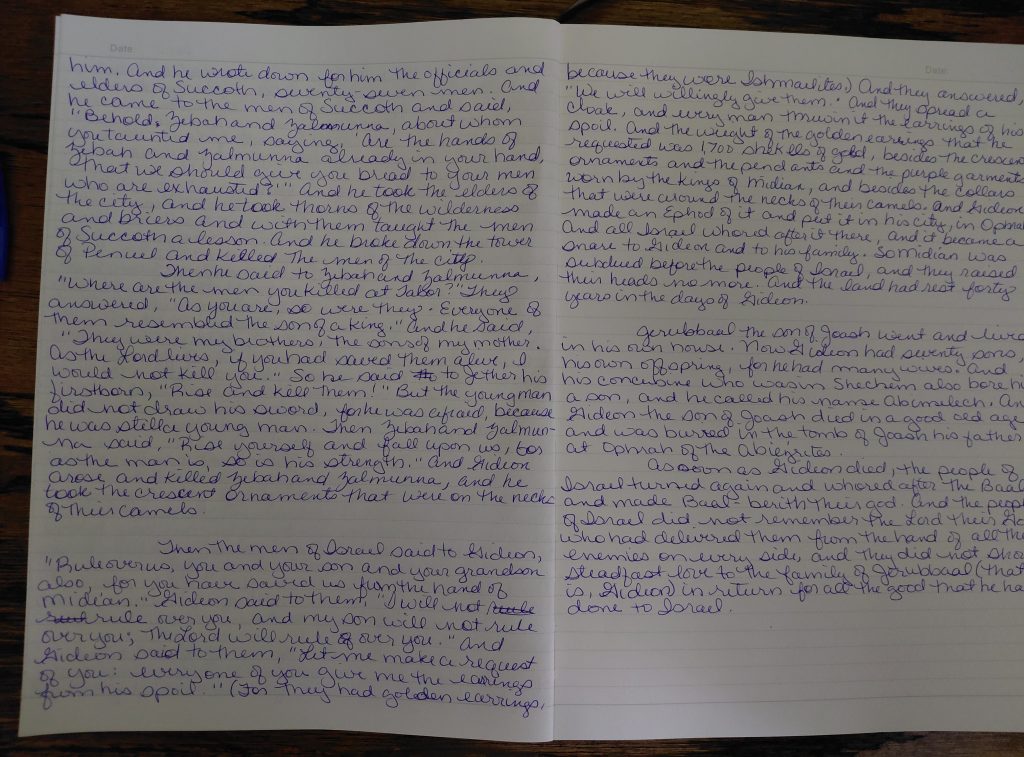 Date
him. And he wrote down for him the officials and
elders of Succoth, seventy-seven men. And
he came to the men of Succoth and said,
"Behold, Zebah and Zalmunna, about whom
you taunted me, saying, 'Are the hands of
Zebah and Zalmunna already in your hand,
that we should give you bread to your men
who are exhausted?'" And he took the elders of
the city, and he took thorns of the wilderness
and briers and with them taught the men
of Succoth a lesson. And he broke down the tower
of Penuel and killed the men of the city.
Then he said to Zebah and Zalmunna,
"Where are the men you killed at Tabor?" They
answered, "As you are, so were they. Everyone of
them resembled the son of a king." And he said,
"They were my brothers, the sons of my mother.
As the Lord lives, if you had saved them alive, I
would not kill you." So he said to Jether his
firstborn, "Rise and kill them!" But the young man
did not draw his sword, for he was afraid, because
he was still a young man. Then Zebah and Zalmun-
na said, "Rise yourself and fall upon us, for
as the man is, so is his strength." And Gideon
arose and killed Zebah and Zalmunna, and he
took the crescent ornaments that were on the necks
of their camels.
Then the men of Israel said to Gideon,
"Rule over us, you and your son and your grandson
also, for you have saved us from the hand of
Midian." Gideon said to them, "I will not
rule over you, and my son will not rule
over you; the Lord will rule of over you." And
Gideon said to them, "Let me make a request
of you: everyone of you give me the earrings
from his spoil." (For they had golden earrings,
Date
because they were Ishmaelites.) And they answered,
"We will willingly give them." And they spread a
cloak, and every man threw in it the earrings of his
spoil. And the weight of the golden earrings that he
requested was 1,700 shekels of gold, besides the crescent
ornaments and the pendants and the purple garments
worn by the kings of Midian, and besides the collars
that were around the necks of their camels. And Gideon
made an Ephod of it and put it in his city, in Ophrah
And all Israel whored after it there, and it became a
snare to Gideon and to his family. So Midian was
subdued before the people of Israel, and they raised
their heads no more. And the land had rest forty
years in the days of Gideon.
Jerubbaal the son of Joash went and lived
in his own house. Now Gideon had seventy sons,
his own offspring, for he had many wives. And
his concubine who was in Shechem also bore hi
a son, and he called his name Abimelech. An
Gideon the son of Joash died in a good old age
and was buried in the tomb of Joash his father
at Ophrah of the Abiezrites.
As soon as Gideon died, the people of
Israel turned again and whored after the Baal
and made Baal-berith their god. And the peop
of Israel did not remember the Lord their Go
who had delivered them from the hand of all the
enemies on every side, and they did not show
steadfast love to the family of Jerubbaal (that
is, Gideon) in return for all the good that he ha
done to Israel.